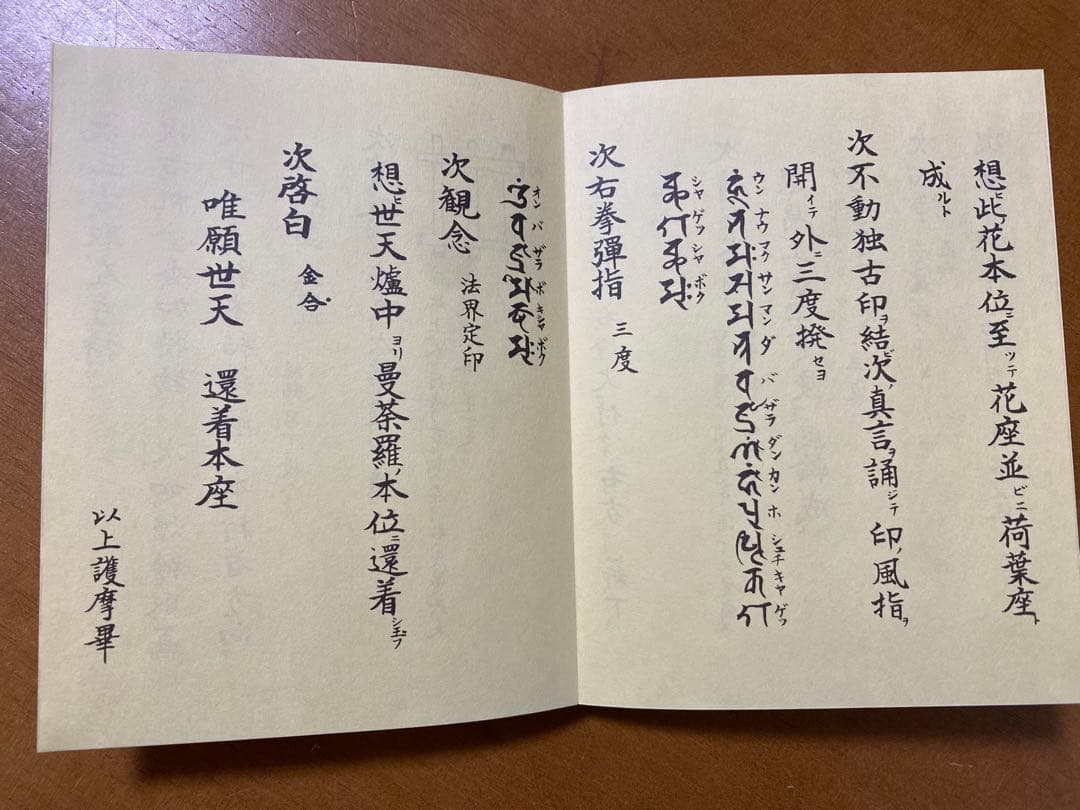 想ヒ此ノ花本位ニ至ツテ花座並ビニ荷葉座ト
成ルト
次不動独古印ヲ結ビ次ノ真言ヲ誦ジテ印ノ風指ヲ
開イテ外ニ三度撥セヨ
ウン ナウ マク サン マン ダ バ ザラ ダン カン ホ シュチ キャ ゲッ
シャ ゲッ シャ ボク
次右拳彈指 三度
オン バ ザラ ボ キシャ ボク
次観念 法界定印
想ヒ世天爐中ヨリ曼荼羅ノ本位ニ還着シ玉フ
次啓白 金合
唯願世天 還着本座
以上護摩畢